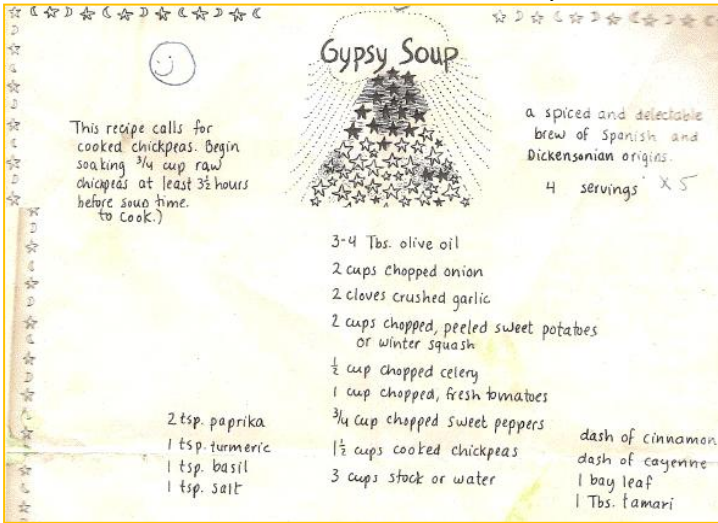 Gypsy Soup
This recipe calls for
cooked chickpeas. Begin
soaking 3/4 cup raw
chickpeas at least 3½ hours
before soup time.
to cook.)
a spiced and delectable
brew of Spanish and
Dickensonian origins.
4 servings x 5
3-4 Tbs. olive oil
2 cups chopped onion
2 cloves crushed garlic
2 cups chopped, peeled sweet potatoes
or winter squash
½ cup chopped celery
1 cup chopped, fresh tomatoes
3/4 cup chopped sweet peppers
1½ cups cooked chickpeas
3 cups stock or water
2 tsp. paprika
1 tsp. turmeric
1 tsp. basil
1 tsp. salt
dash of cinnamon
dash of cayenne
1 bay leaf
1 Tbs. tamari